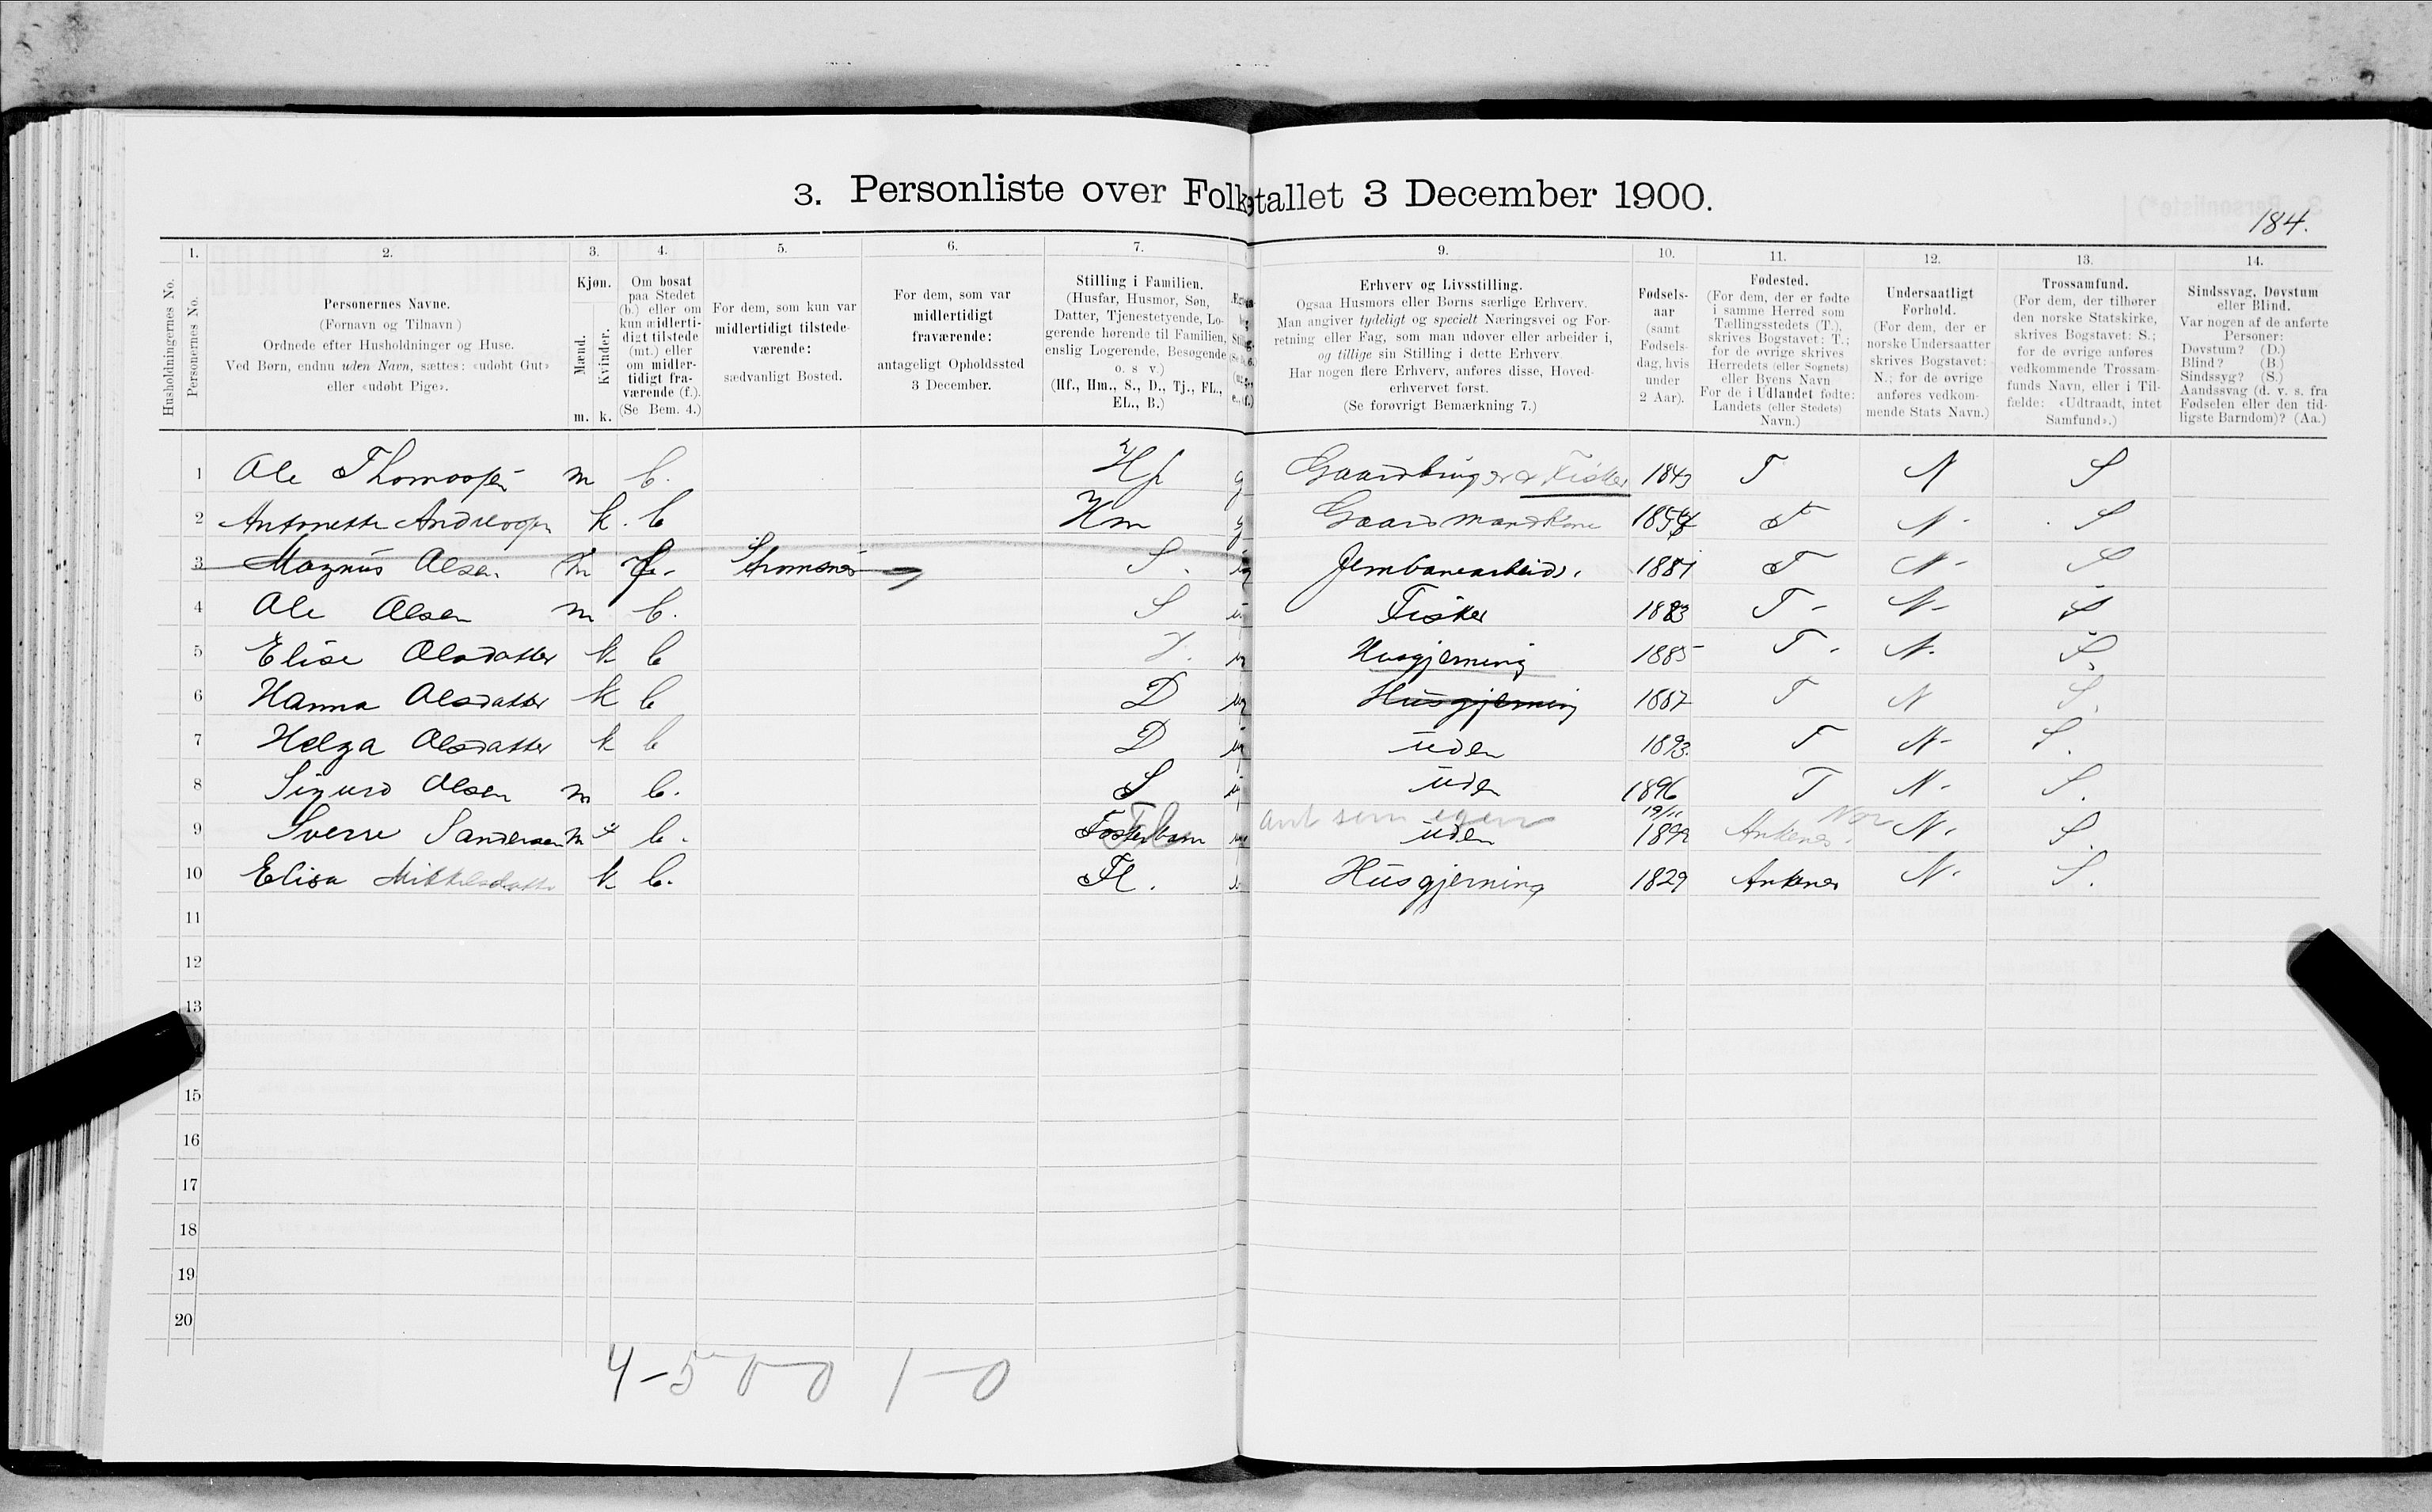 3. Personliste over Folketallet 3 December 1900.
184.
1. 2. 3. 4. 5. 6. 7. 9. 10. 11. 12. 13. 14.
Husholdningernes No.
Personernes No.
Personernes Navne.
(Fornavn og Tilnavn)
Ordnede efter Husholdninger og Huse.
Ved Børn, endnu uden Navn, sættes: «udøbt Gut»
eller «udøbt Pige».
Kjøn.
Mænd.
Kvinder.
m. k.
Om bosat
paa Stedet
(b.) eller om
kun midlerti-
digt tilstede
(mt.) eller
om midler-
tidigt fra-
værende (f.).
(Se Bem. 4.)
For dem, som kun var
midlertidigt tilstede-
værende:
sædvanligt Bosted.
For dem, som var
midlertidigt
fraværende:
antageligt Opholdssted
3 December.
Stilling i Familien.
(Husfar, Husmor, Søn,
Datter, Tjenestetyende, Lo-
gerende hørende til Familien,
enslig Logerende, Besøgende
o. s v.)
(Hf., Hm., S., D., Tj., FL.,
EL., B.)
Erhverv og Livsstilling.
Ogsaa Husmors eller Børns særlige Erhverv.
Man angiver tydeligt og specielt Næringsvei og For-
retning eller Fag, som man udøver eller arbeider i,
og tillige sin Stilling i dette Erhverv.
Har nogen flere Erhverv, anføres disse, Hoved-
erhvervet først.
(Se forøvrigt Bemærkning 7.)
Fødsels-
aar
(samt
Fødsels-
dag, hvis
under
2 Aar).
Fødested.
(For dem, der er fødte
i samme Herred som
Tællingsstedets (T.),
skrives Bogstavet: T.;
for de øvrige skrives
Herredets (eller Sognets)
eller Byens Navn
For de i Udlandet fødte:
Landets (eller Stedets)
Navn.)
Undersaatligt
Forhold.
(For dem, der er
norske Undersaatter
skrives Bogstavet:
N.; for de øvrige
anføres vedkom-
mende Stats Navn.)
Trossamfund.
(For dem, der tilhører
den norske Statskirke,
skrives Bogstavet: S.;
for de øvrige anføres
vedkommende Trossam-
funds Navn, eller i Til-
fælde: «Udtraadt, intet
Samfund».)
Sindssvag, Døvstum
eller Blind.
Var nogen af de anførte
Personer:
Døvstum? (D.)
Blind? (B.)
Sindssyg? (S.)
Aandssvag (d. v. s. fra
Fødselen eller den tid-
ligste Barndom)? (Aa.)
1 Ole Thomassen m b. Hf g Gaardbruger & Fisker 1849 T N S
2 Antonette Andreasen k. b Hm g Gaardmandskone T N - S
3 Magnus Olsen m Strømsnes S. Jernbanearbeids. 1881 T N - S
4 Ole Olsen m b. S Fisker 1883 T - N - S
5 Elise Olsdatter k b Husgjerning 1885 T - N. S.
6 Hanna Olsdatter k b D Husgjerning 1887 T N S.
7 Helga Olsdatter k b D uden 1893. T N - S.
8 Sigurd Olsen m b. S uden 1896 T N - S.
9 Sverre Sandersen m b. Fosterbarn ant som egen uden 19/11 1899 Ankenes. Nor N. S.
10 Elisa Mikkelsdatter k b. Fl. Husgjerning 1829 Ankenes N. S.
11
12
13
15
16
17
18
19
20
4 - 5 0 - 0 1 - 0